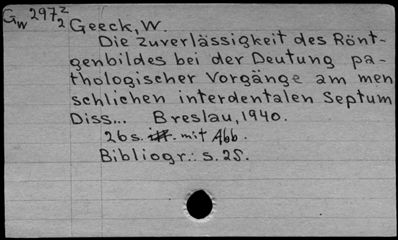 Gw 297 2/2 Geeck, W.
Die Zuverlässigkeit des Rönt-
genbildes bei der Deutung pa-
thologischer Vorgänge am men
schlichen interdentalen Septum
Diss... Breslau, 1940.
26 s. mit Abb.
Bibliogr.: s. 25.